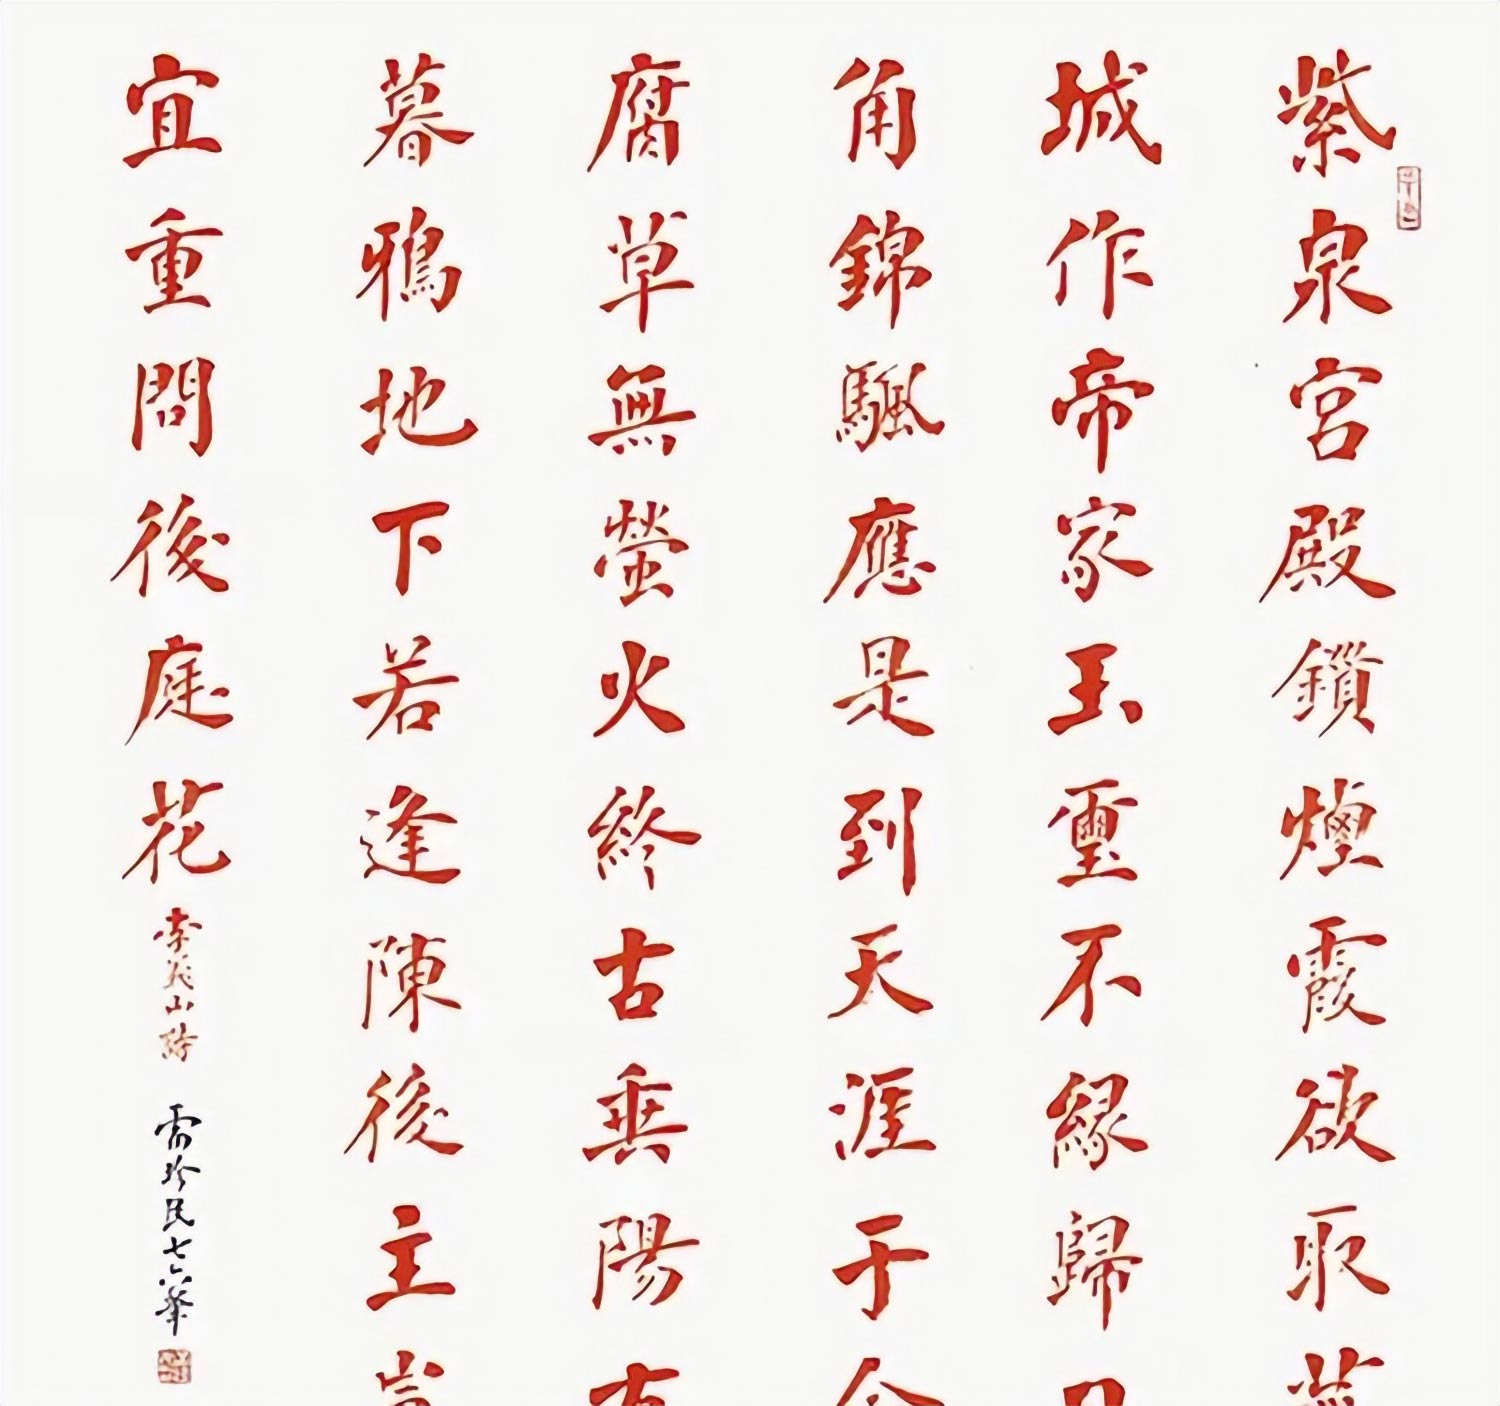 紫泉宮殿鎖煙霞欲取
城作帝家玉璽不緣歸
角錦颿應是到天涯于
腐草無螢火終古垂陽
暮鴉地下若逢陳後主
宜重問後庭花
李義山詩
雷珍民七